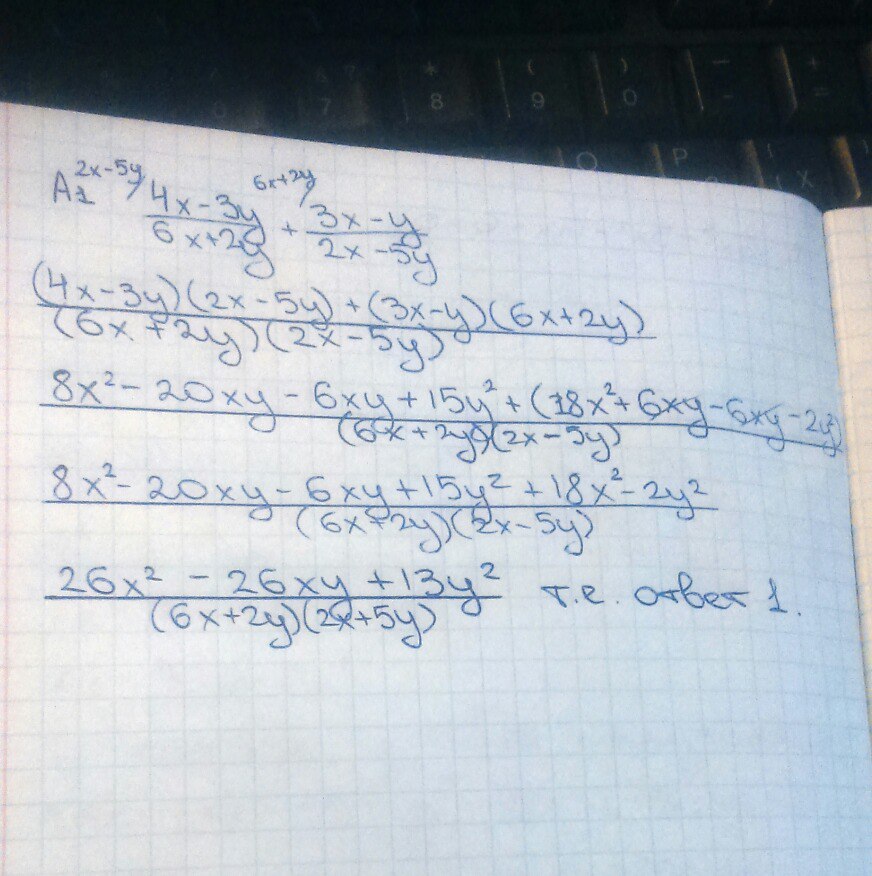 * ( ) — +
7 8 9 0 - =
O P
A1 2x-5y/ 4x-3y/6x+2y + 6x+2y/ 3x-y/2x-5y
(4x-3y)(2x-5y)+(3x-y)(6x+2y)
(6x+2y)(2x-5y)
8x²-20xy-6xy+15y²+(18x²+6xy-6xy-2y²)
(6x+2y)(2x-5y)
8x²-20xy-6xy+15y²+18x²-2y²
(6x+2y)(2x-5y)
26x²-26xy+13y² т.е. ответ 1.
(6x+2y)(2x+5y)